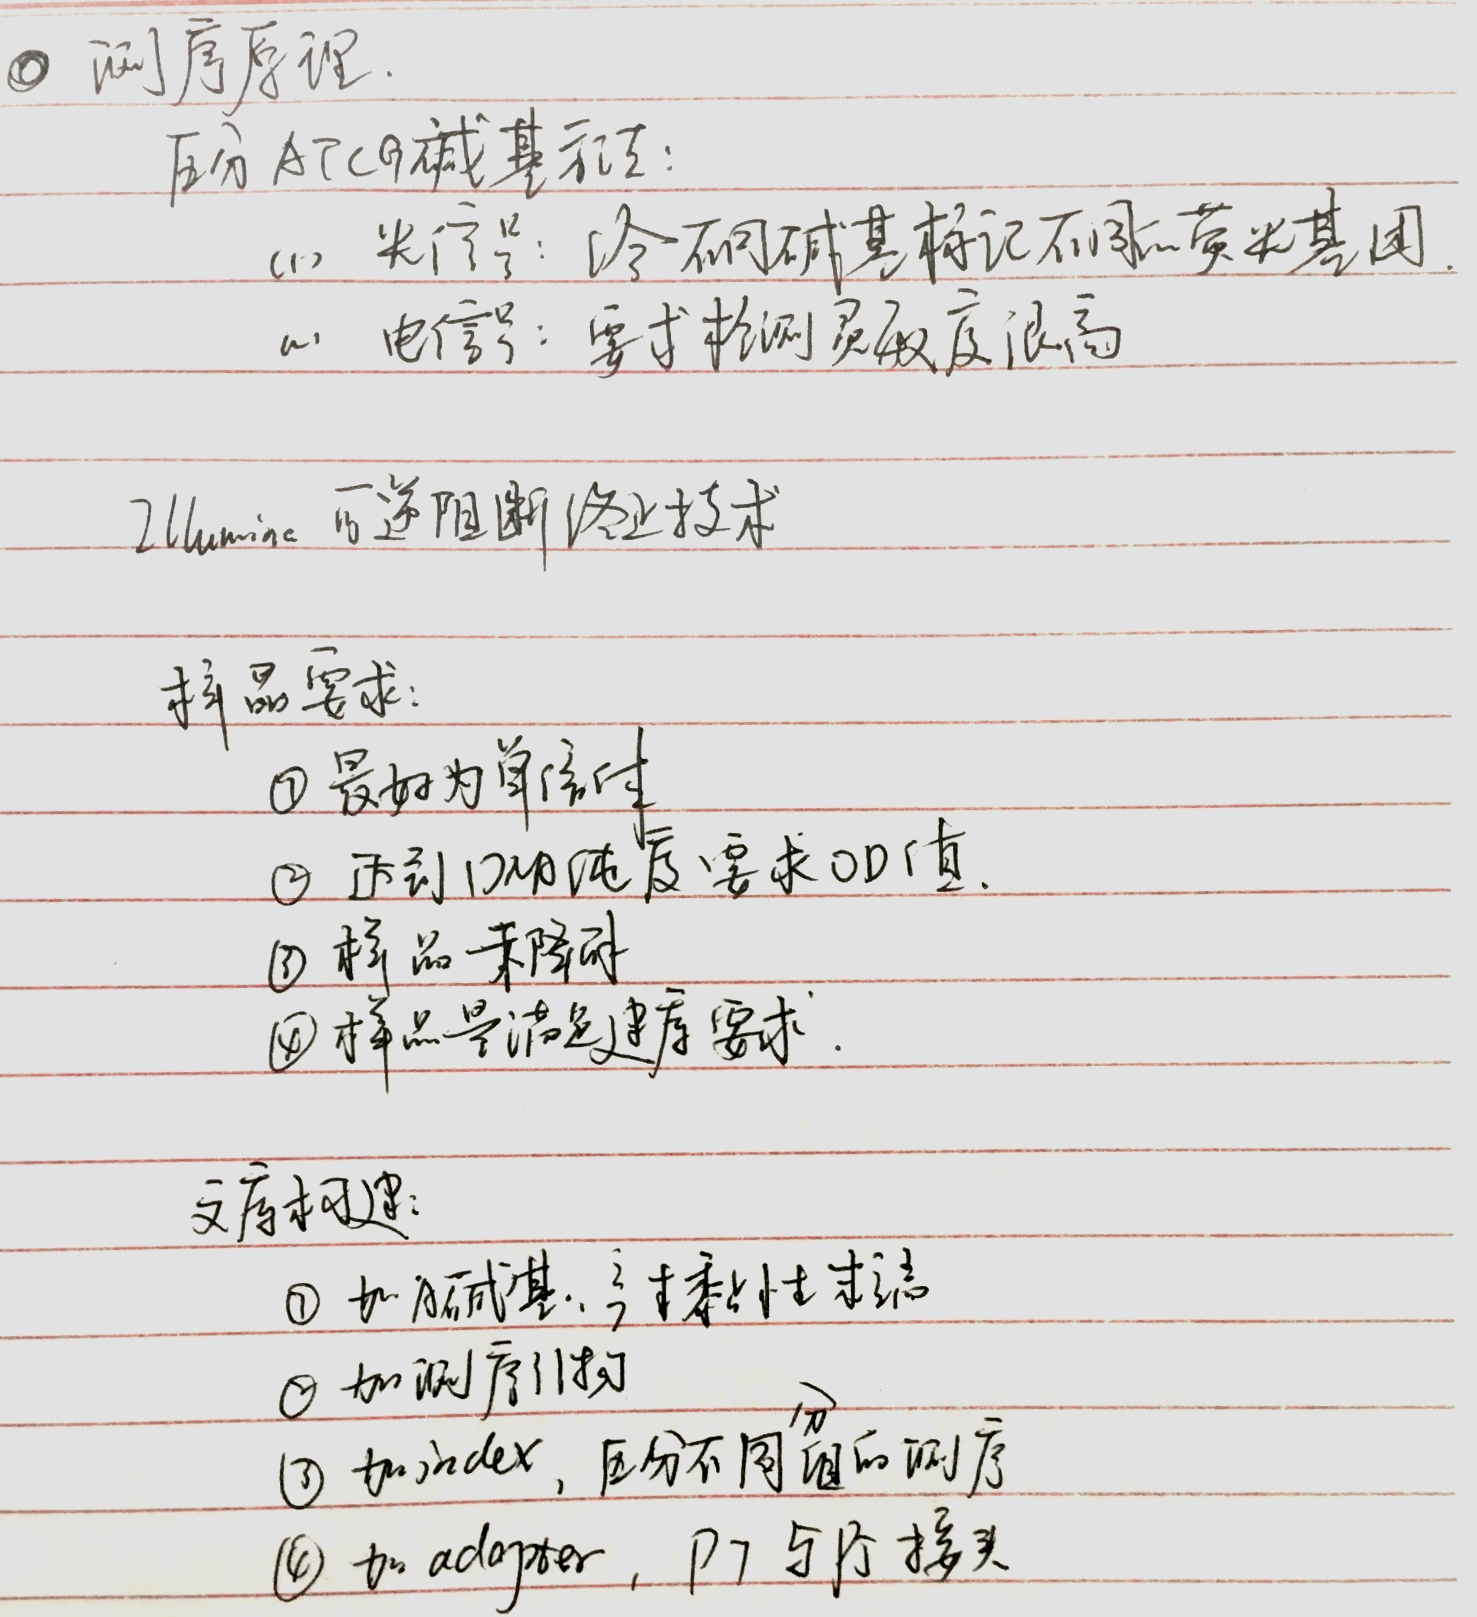 ◎ 测序原理.
区分ATCG碱基方法:
(1) 光信号: 给不同碱基标记不同的荧光基团.
(2) 电信号: 要求检测灵敏度很高
Illumina 可逆阻断终止技术
样品要求:
① 最好为单倍体
② 达到DNA纯度要求OD值.
③ 样品未降解
④ 样品量满足建库要求.
文库构建:
① 加A碱基, 产生黏性末端
② 加测序引物
③ 加index, 区分不同组分的测序
④ 加adapter, P7与P5接头